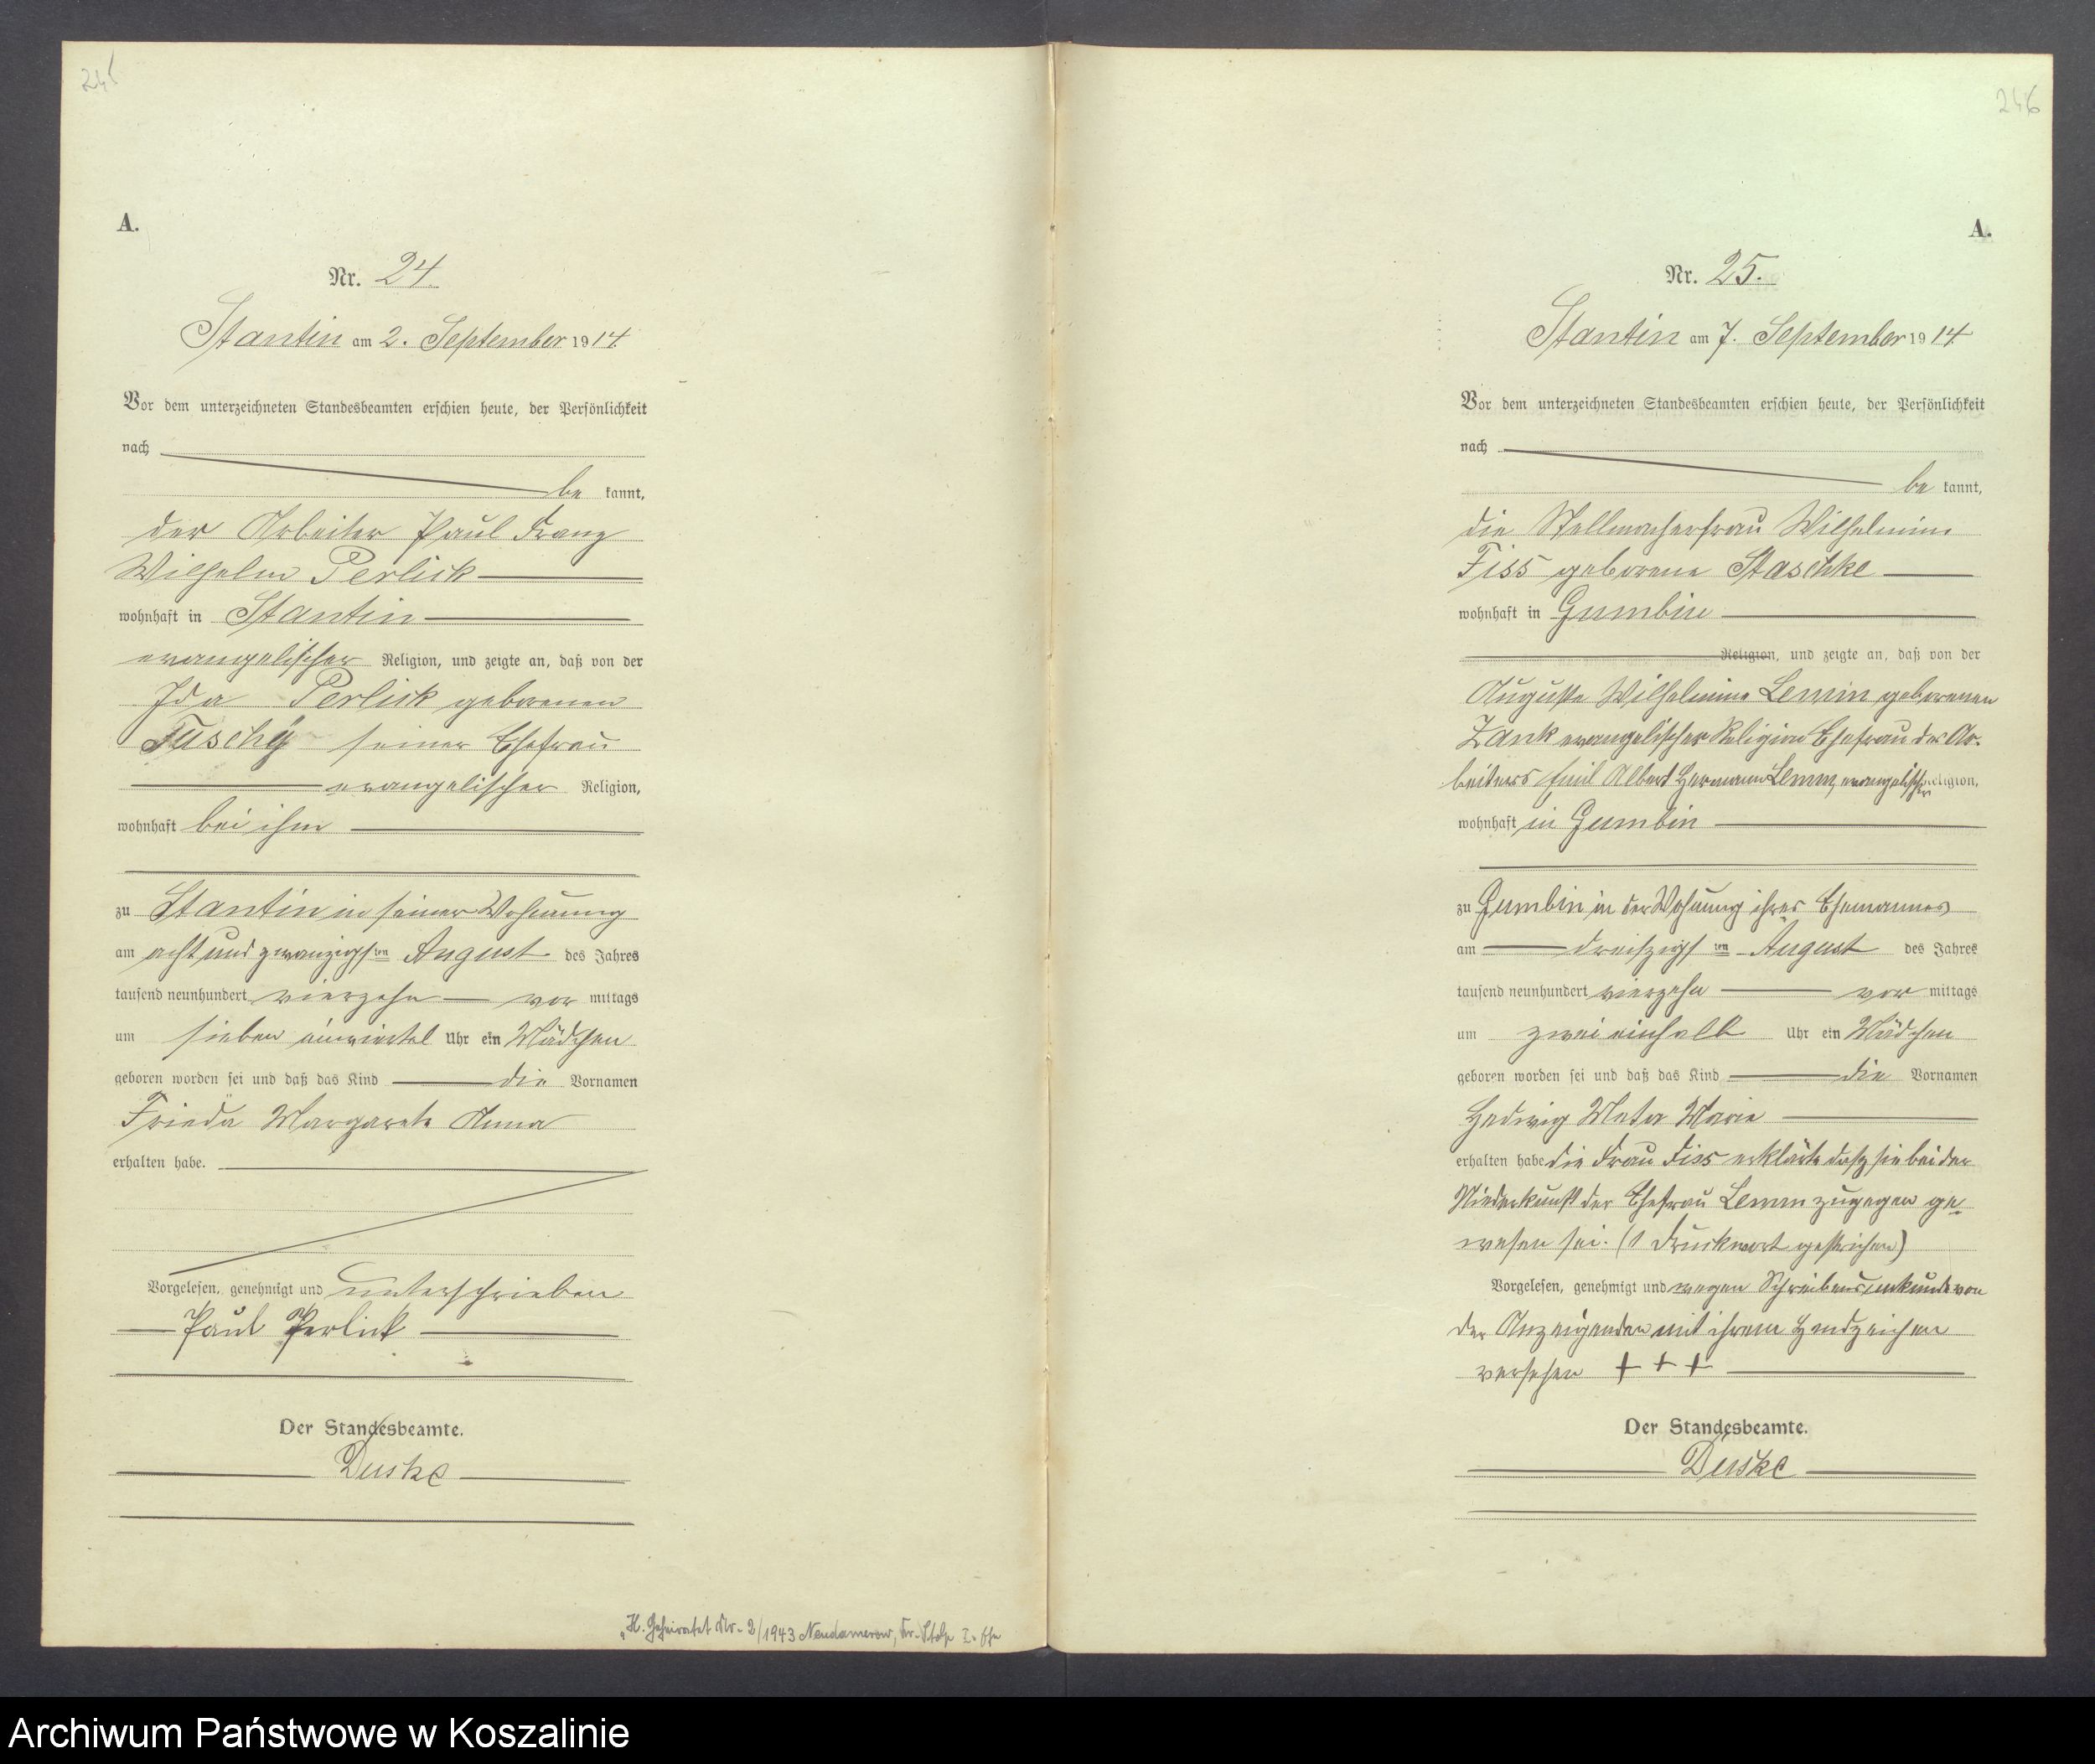 245
A.
Nr. 24.
Stantin am 2. September 1914.
Vor dem unterzeichneten Standesbeamten erschien heute, der Persönlichkeit
nach
be kannt,
der Arbeiter Paul Franz
Wilhelm Perlick
wohnhaft in Stantin
evangelischer Religion, und zeigte an, daß von der
Ida Perlick geborenen
Tuschÿ seiner Ehefrau
evangelischer Religion,
wohnhaft bei ihm
zu Stantin in seiner Wohnung
am acht und zwanzigsten August des Jahres
tausend neunhundert vierzehn vor mittags
um sieben einviertel Uhr ein Mädchen
geboren worden sei und daß das Kind die Vornamen
Frieda Margarete Anna
erhalten habe.
Vorgelesen, genehmigt und unterschrieben
Paul Perlick
Der Standesbeamte.
Duske
H. Geheiratet Nr. 2/1943 Neudamerow, Kr. Stolp
246
A.
Nr. 25.
Stantin am 7. September 1914
Vor dem unterzeichneten Standesbeamten erschien heute, der Persönlichkeit
nach
be kannt,
die Stellmacherfrau Wilhelmine
Fiss geborene Staschke
wohnhaft in Gumbin
Religion, und zeigte an, daß von der
Auguste Wilhelmine Lemm geborenen
Zank evangelischer Religion Ehefrau des Ar-
beiters Emil Albert Hermann Lemm, evangelischer Religion,
wohnhaft in Gumbin
zu Gumbin in der Wohnung ihres Ehemannes
am dreißigsten August des Jahres
tausend neunhundert vierzehn vor mittags
um zwei einhalb Uhr ein Mädchen
geboren worden sei und daß das Kind die Vornamen
Hedwig Meta Marie
erhalten habe die Frau Fiss erklärte daß sie bei der
Niederkunft der Ehefrau Lemm zugegen ge-
wesen sei. (1 Druckwort gestrichen)
Vorgelesen, genehmigt und wegen Schreibensunkunde von
der Anzeigenden mit ihrem Handzeichen
versehen + + +
Der Standesbeamte.
Duske
Archiwum Państwowe w Koszalinie